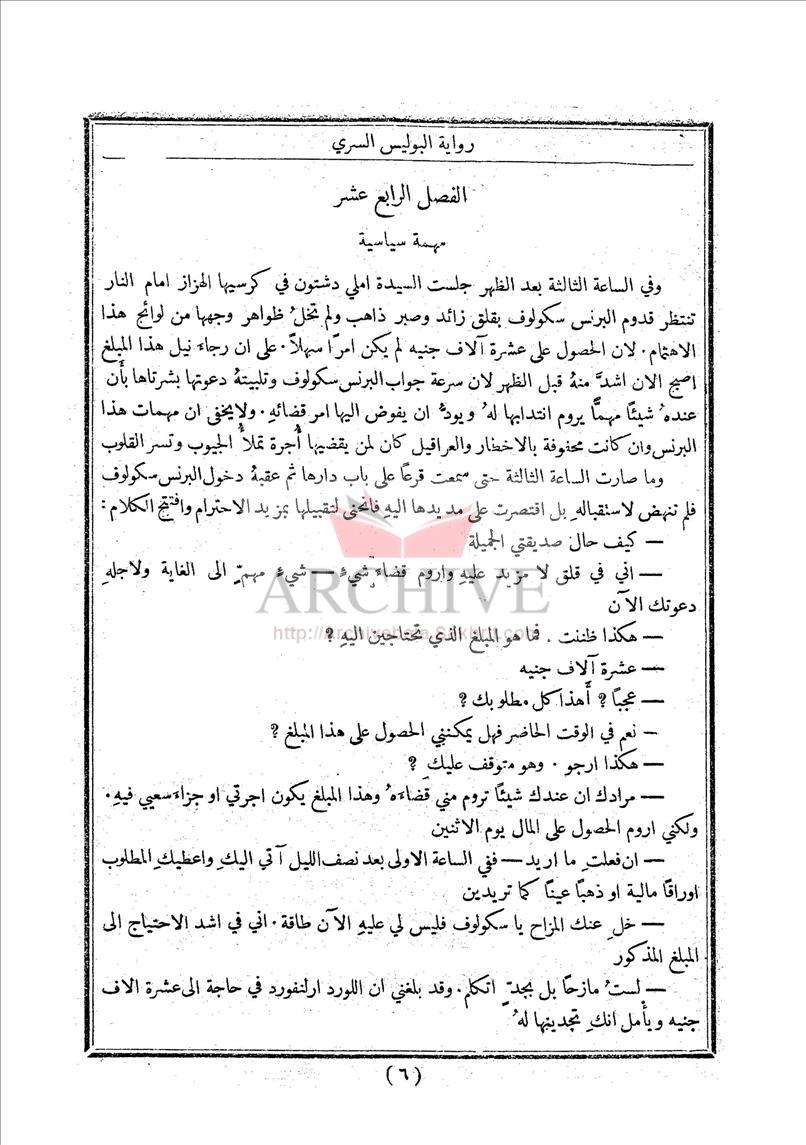 رواية البوليس السري
الفصل الرابع عشر
مهمة سياسية
وفي الساعة الثالثة بعد الظهر جلست السيدة املي دشتون في كرسيها الهزاز امام النار
تنتظر قدوم البرنس سكولوف بقلق زائد وصبر ذاهب ولم تخلُ ظواهر وجهها من لوائح هذا
الاهتمام. لان الحصول على عشرة آلاف جنيه لم يكن امرًا سهلاً. على ان رجاءَ نيل هذا المبلغ
اصبح الان اشدَّ منهُ قبل الظهر لان سرعة جواب البرنس سكولوف وتلبيتهُ دعوتها بشرتاها بأن
عندهُ شيئًا مهمًّا يروم انتدابها لهُ ويودُّ ان يفوض اليها امر قضائهِ. ولا يخفى ان مهمات هذا
البرنس وان كانت محفوفة بالاخطار والعراقيل كان لمن يقضيها أجرة تملأُ الجيوب وتسر القلوب
وما صارت الساعة الثالثة حتى سمعت قرعًا على باب دارها ثم عقبهُ دخول البرنس سكولوف
فلم تنهض لاستقبالهِ بل اقتصرت على مد يدها اليهِ فانحنى لتقبيلها بمزيد الاحترام وافتتح الكلام:
— كيف حال صديقتي الجميلة
— اني في قلق لا مزيد عليهِ واروم قضاءَ شيءٍ — شيءٍ مهمٍّ الى الغاية ولاجلهِ
دعوتك الآن
ARCHIVE
— هكذا ظننت. فما هو المبلغ الذي تحتاجين اليهِ ?
http://Archivebeta.Sakhrit.com
— عشرة آلاف جنيه
— عجبًا ? أَهذا كل مطلوبك ?
— نعم في الوقت الحاضر فهل يمكنني الحصول على هذا المبلغ ?
— هكذا ارجو. وهو متوقف عليكِ ?
— مرادك ان عندك شيئًا تروم مني قضاءَهُ وهذا المبلغ يكون اجرتي او جزاءَ سعيي فيهِ.
ولكني اروم الحصول على المال يوم الاثنين
— ان فعلتِ ما اريد — ففي الساعة الاولى بعد نصف الليل آتي اليكِ واعطيكِ المطلوب
اوراقًا مالية او ذهبًا عينًا كما تريدين
— خلِ عنك المزاح يا سكولوف فليس لي عليهِ الآن طاقة. اني في اشد الاحتياج الى
المبلغ المذكور
— لستُ مازحًا بل بجدٍّ اتكلم. وقد بلغني ان اللورد ارلنفورد في حاجة الى عشرة الاف
جنيه ويأمل انكِ تجدينها لهُ
(٦)